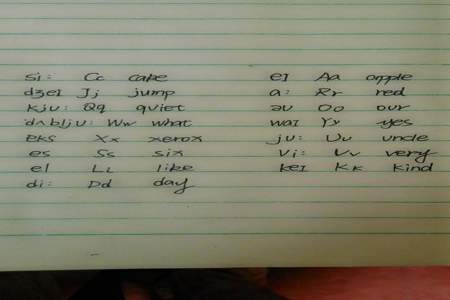 si: Cc cake eɪ Aa apple
dʒeɪ Jj jump a: Rr red
kju: Qq quiet əu Oo our
dʌblju: Ww what waɪ Yy yes
eks Xx xerox ju: Uu uncle
es Ss six vi: Vv very
el Ll like keɪ Kk kind
di: Dd day